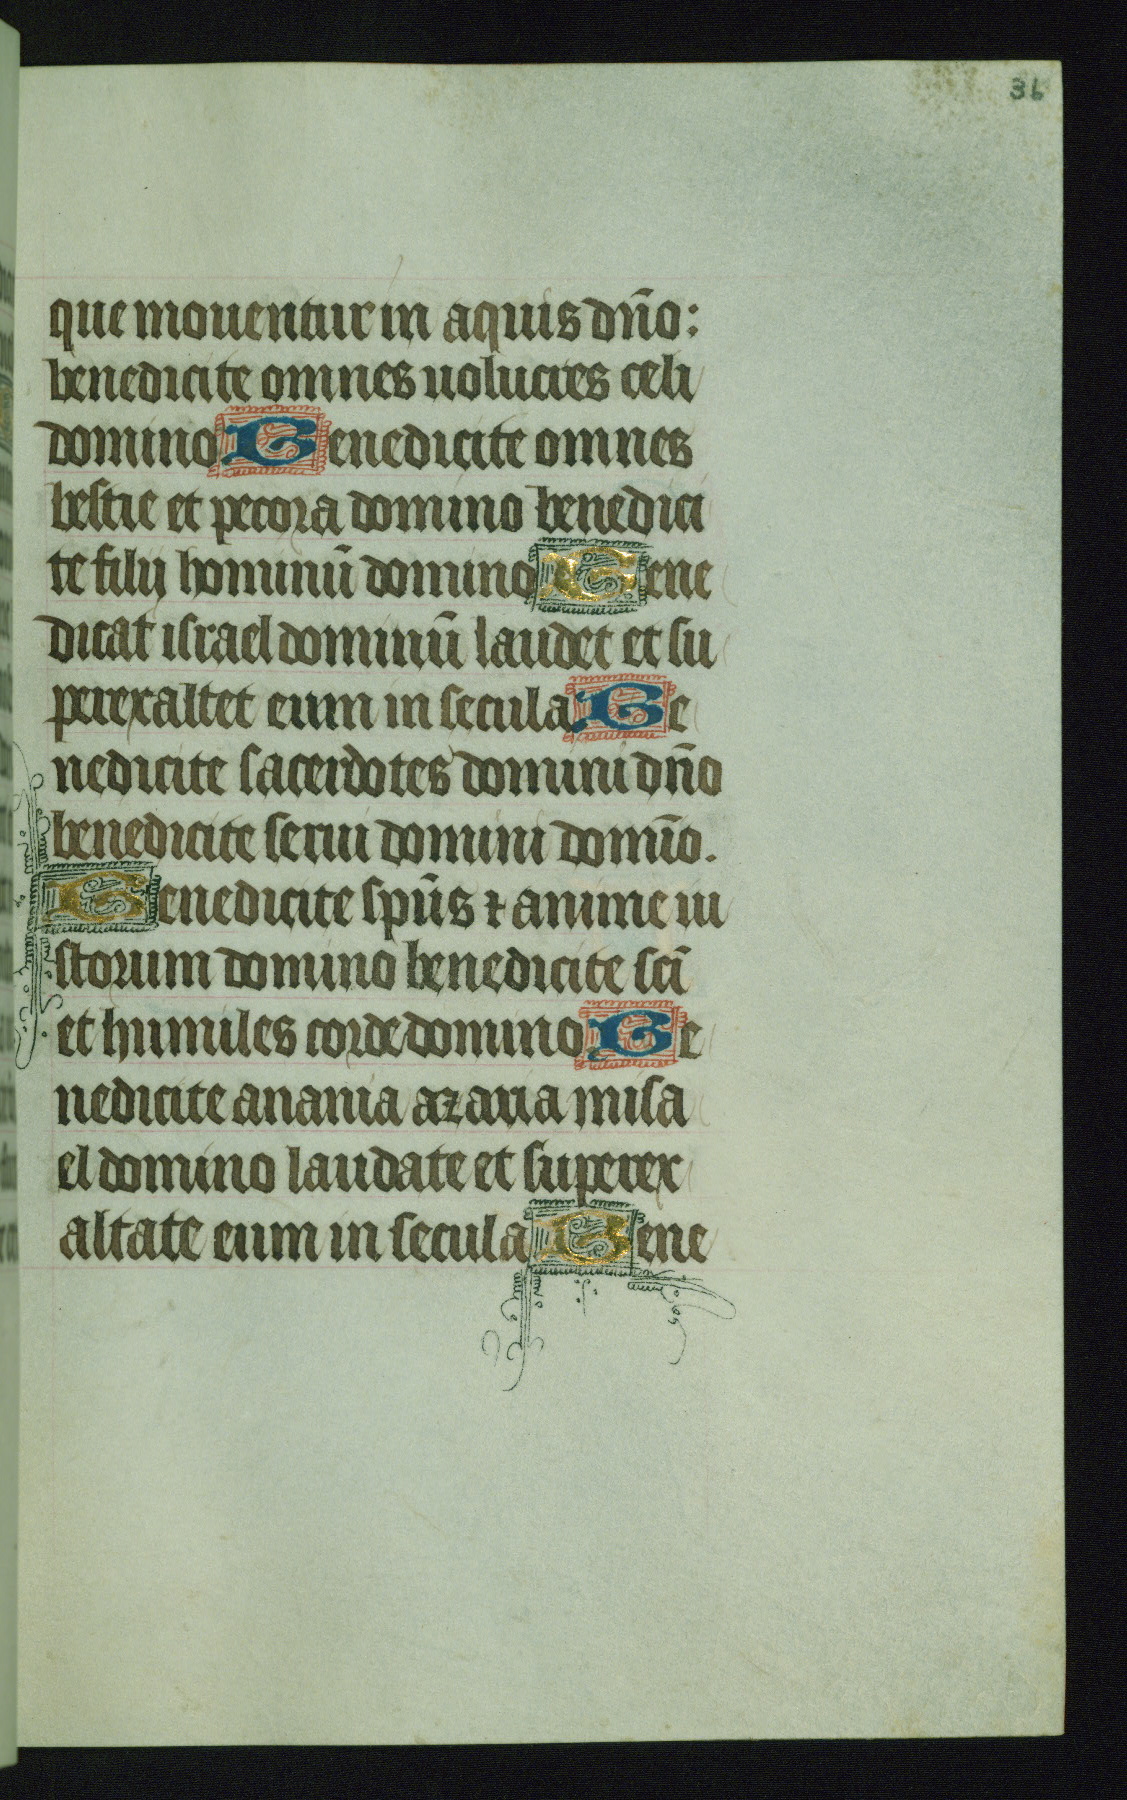 36
que mouentur in aquis dn̄o:
benedicite omnes uolucres celi
domino Benedicite omnes
bestie et pecora domino benedici
te filij hominū domino Bene
dicat israel dominū laudet et su
perexaltet eum in secula Be
nedicite sacerdotes domini dn̄o
benedicite serui domini domīo.
Benedicite spūs ⁊ anime iu
storum domino benedicite scī
et humiles corde domino Be
nedicite anania azaria misa
el domino laudate et superex
altate eum in secula Bene